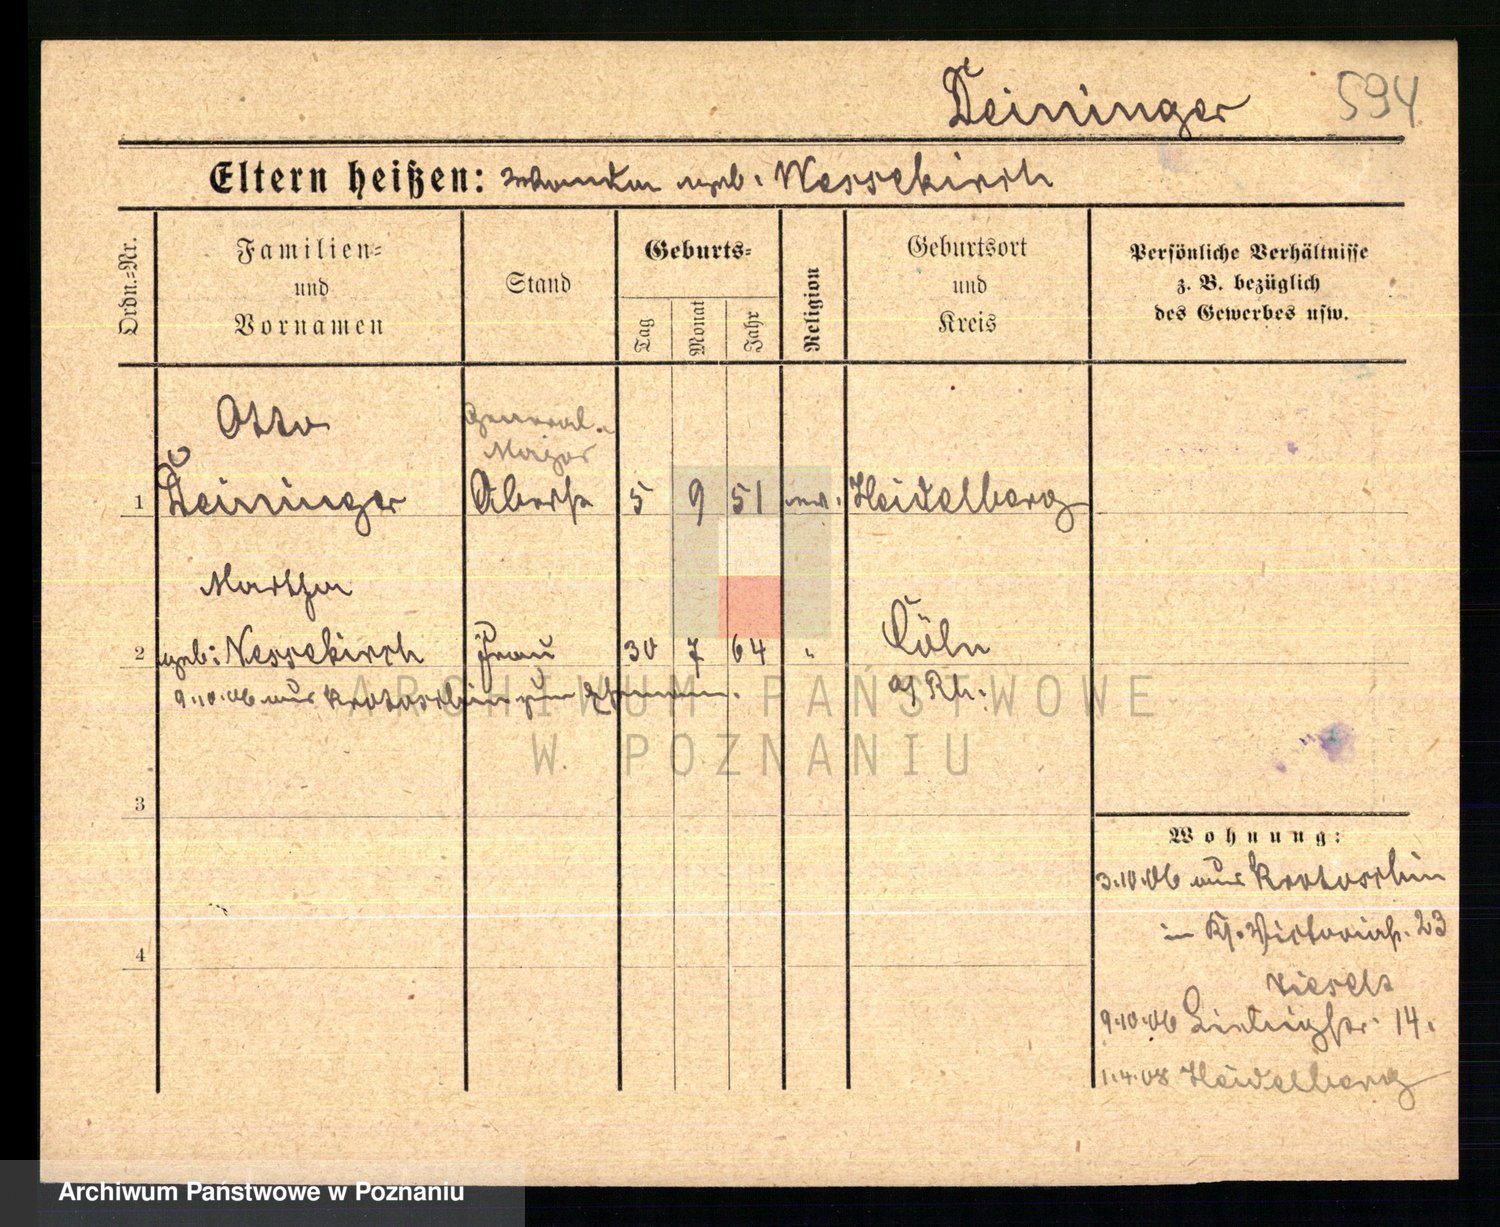 Deininger 594
Eltern heißen: geb: Nessekirch
Ordn.-Nr.
Familien-
und
Vornamen
Stand
Geburts-
Tag
Monat
Jahr
Religion
Geburtsort
und
Kreis
Persönliche Verhältnisse
z. B. bezüglich
des Gewerbes usw.
Otto
General-
Major
1 Deininger Oberst 5 9 51 ev. Heidelberg
Martha
2 geb: Nessekirch Frau 30 7 64 " Cöln
9.10.06 aus Krotoschin zum
a/Rh.
ARCHIWUM PAŃSTWOWE
W POZNANIU
3
4
Wohnung:
3.10.06 aus Krotoschin
in Victoriastr. 23
9.10.06 14.
1.4.08 Heidelberg
Archiwum Państwowe w Poznaniu